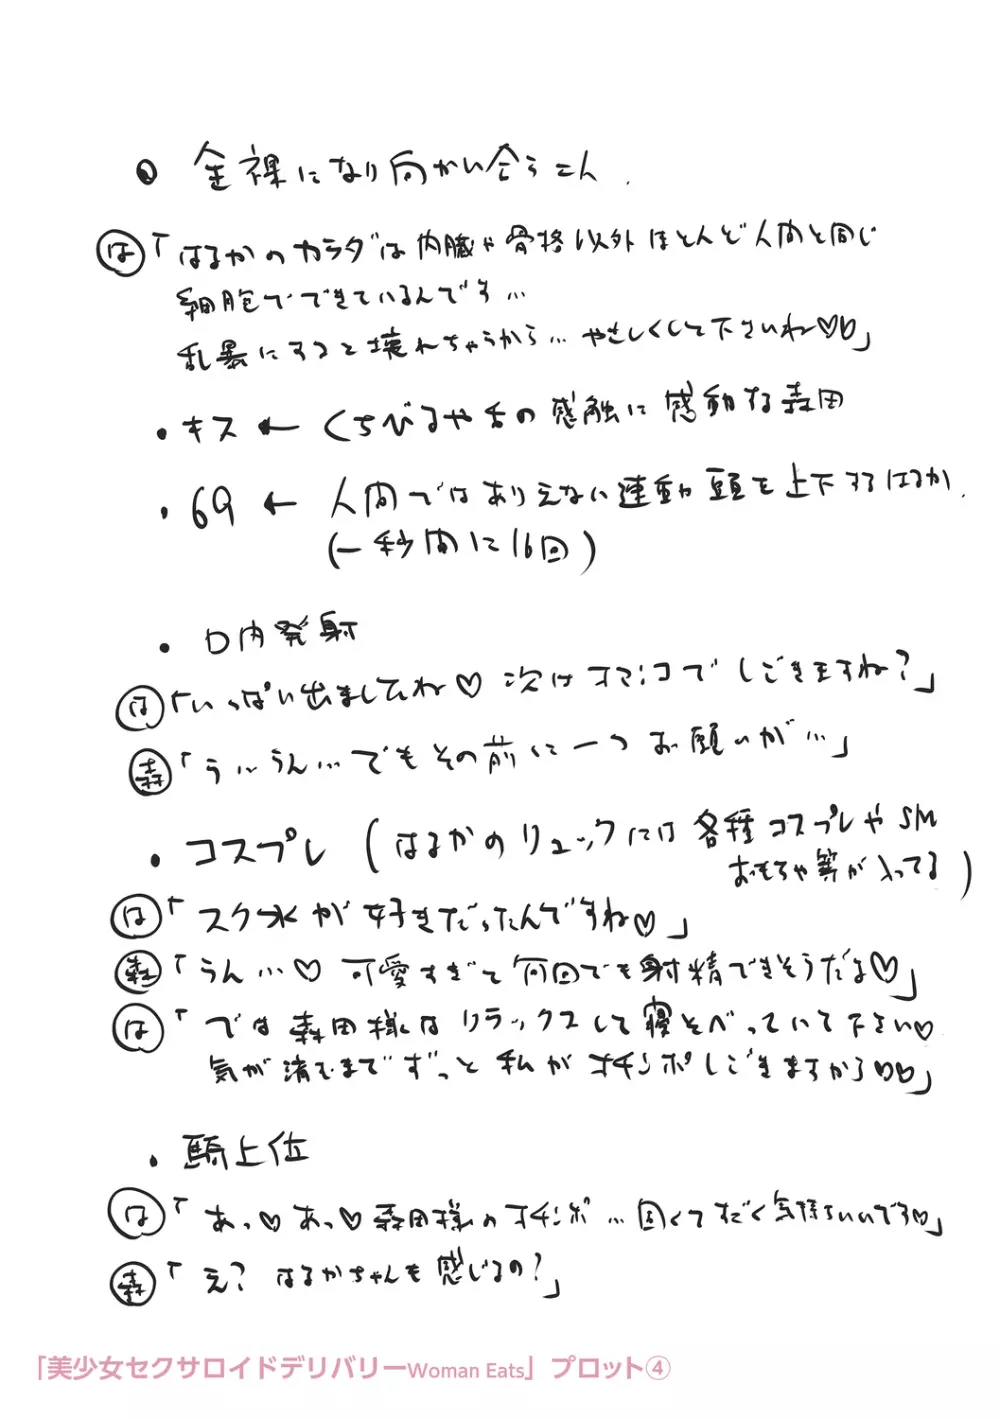 ● 全裸になり向かい合う二人.
は「はるかのカラダは内臓や骨格以外ほとんど人間と同じ
細胞でできているんです…
乱暴にすると壊れちゃうから…やさしくして下さいね♡♡」
・キス ← くちびるや舌の感触に感動する森田
・69 ← 人間ではありえない運動 頭を上下するはるか.
(一秒間に16回)
・口内発射
は「いっぱい出ましたね♡ 次はオマンコでしごきますね?」
森「う…うん…でもその前に一つお願いが…」
・コスプレ (はるかのリュックには各種コスプレやSM
おもちゃ等が入ってる)
は「スク水が好きだったんですね♡」
森「うん…♡ 可愛すぎて何回でも射精できそうだよ♡」
は「では森田様はリラックスして寝そべっていて下さい♡
気が済むまでずっと私がオチンポしごきますから♡♡」
・騎上位
は「あっ♡あっ♡森田様のオチンポ…固くてすごく気持ちいいです♡」
森「え? はるかちゃんも感じるの?」
「美少女セクサロイドデリバリーWoman Eats」プロット④